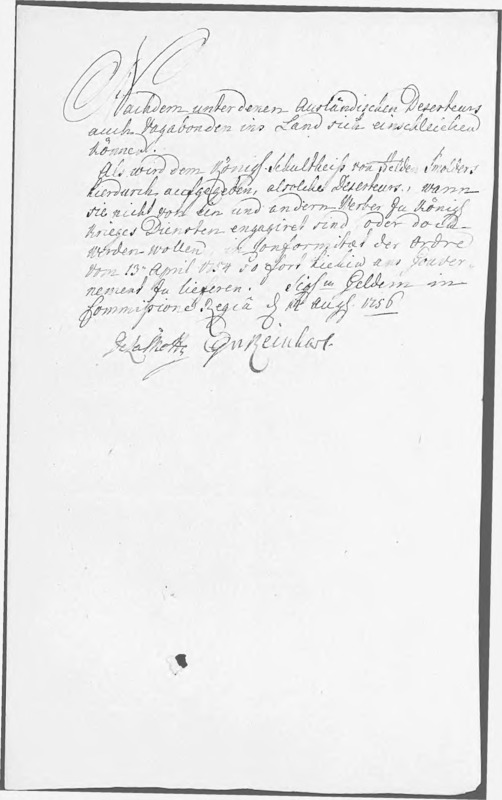 Nachdem unter denen Ausländischen Deserteurs
auch Vagabonden ins Land sich einschleichen
können.
Als wird dem Königl. Schultheiss von Smolders
hierdurch aufgegeben, alsolche Deserteurs, wann
sie nicht von ein und andern Werber zu Königl.
Krieges Diensten engagiret sind oder
werden wollen in Conformität der Ordre
vom 13ten April 1754 so fort hiehin ans Gouver-
nement zu lieferen. Sigl. in Geldern in
Commissione Regiâ d. Augl. 1756
De La Motte Reinhart